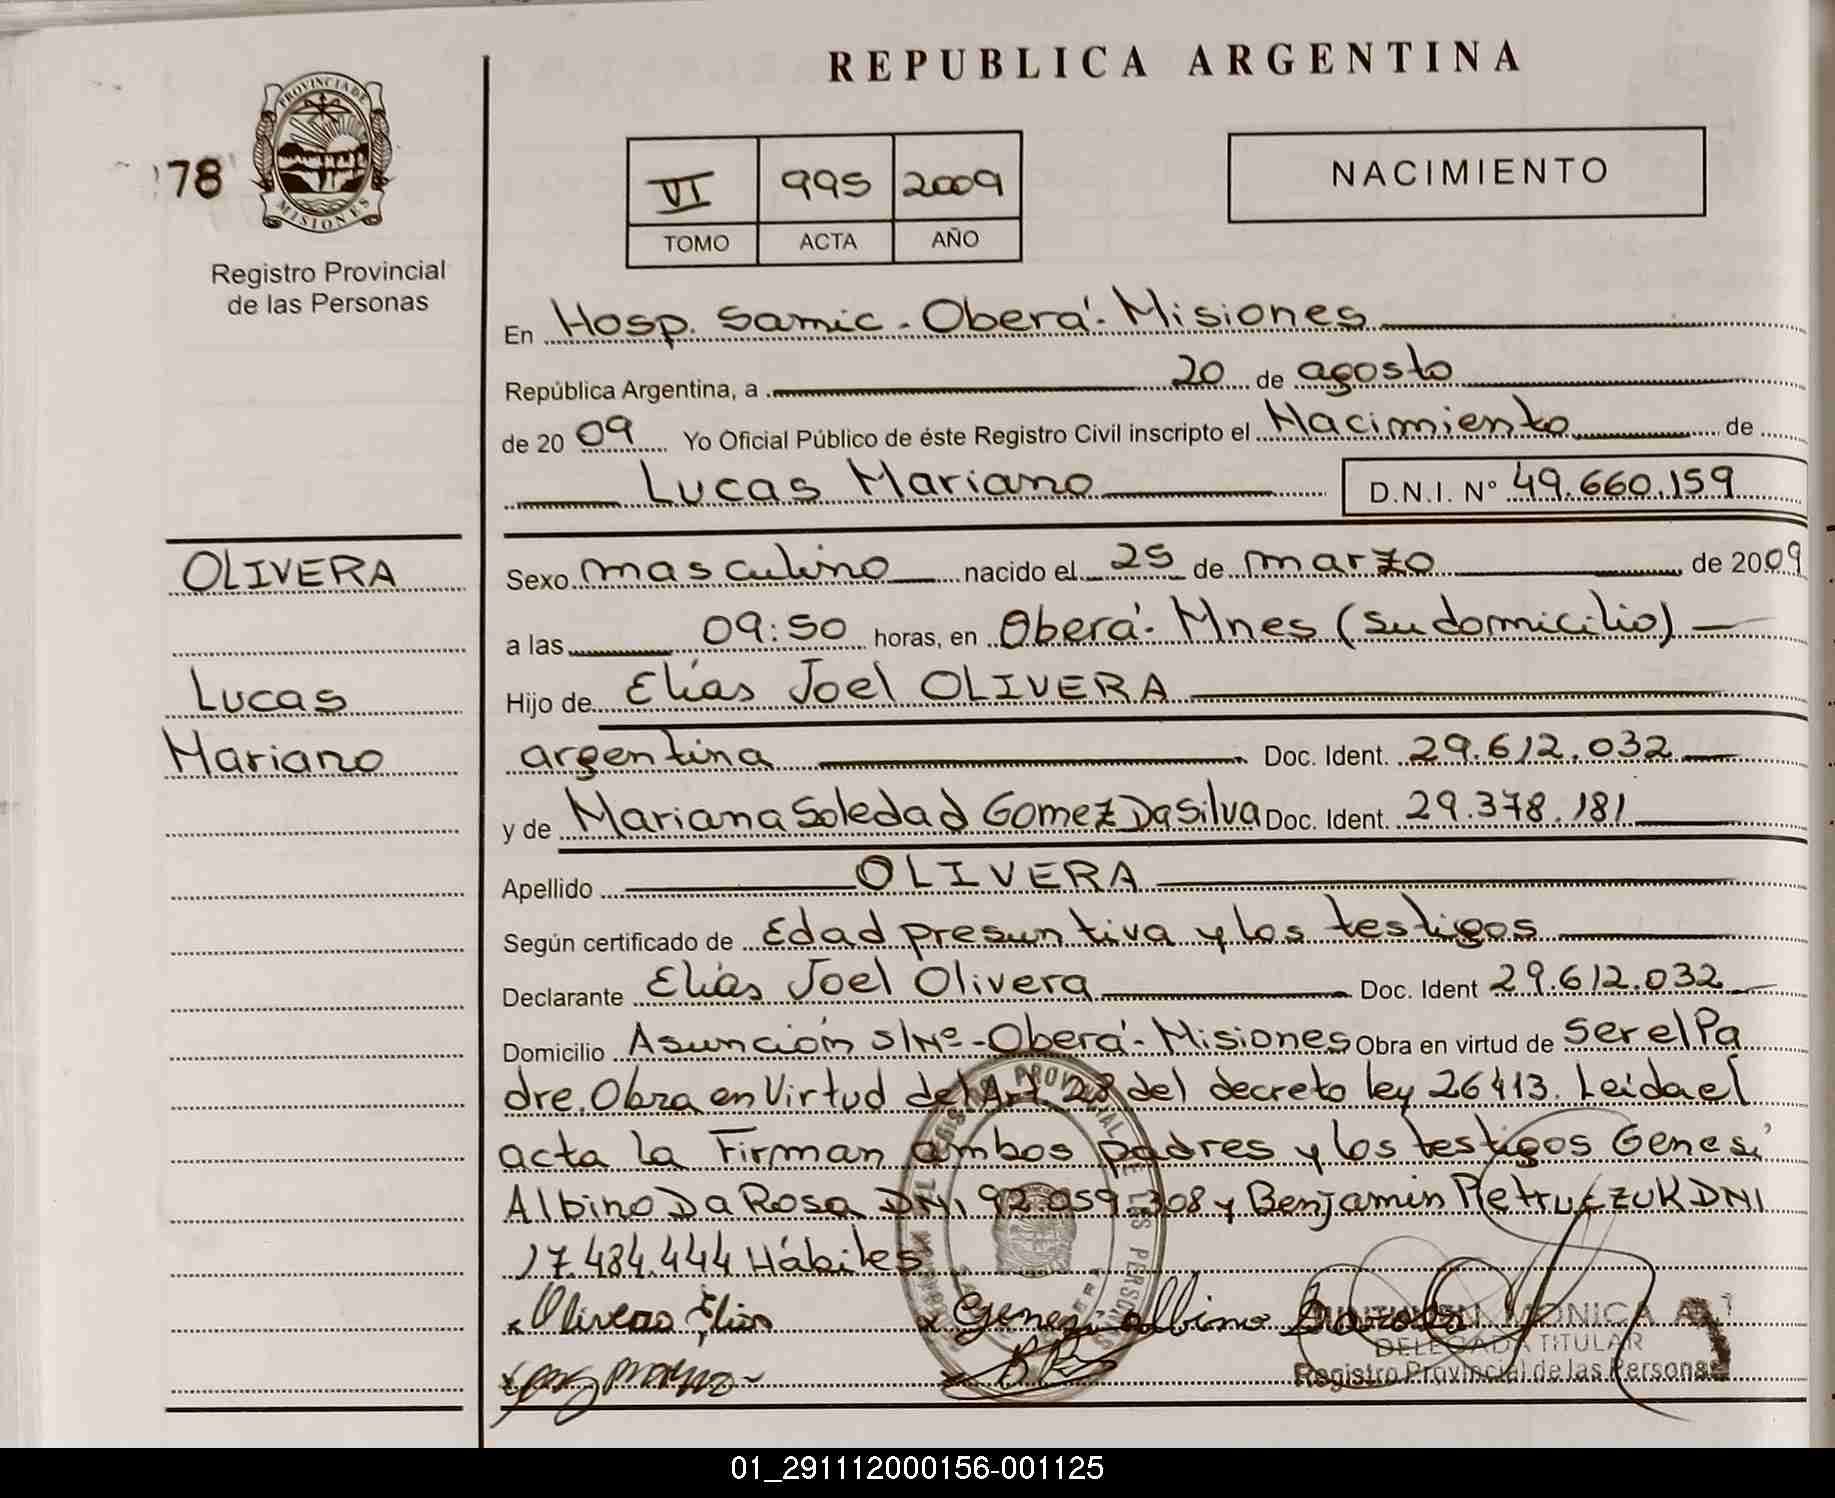 REPUBLICA ARGENTINA
PROVINCIA DE
MISIONES
78
Registro Provincial
de las Personas
VI 995 2009
TOMO ACTA AÑO
NACIMIENTO
En Hosp. Samic - Oberá - Misiones
República Argentina, a 20 de agosto
de 20 09 Yo Oficial Público de éste Registro Civil inscripto el Nacimiento de
Lucas Mariano D.N.I. Nº 49.660.159
OLIVERA
Lucas
Mariano
Sexo masculino nacido el 25 de marzo de 2009
a las 09:50 horas, en Oberá - Mnes (su domicilio)
Hijo de Elías Joel OLIVERA
argentina Doc. Ident. 29.612.032
y de Mariana Soledad Gomez Da Silva Doc. Ident. 29.378.181
Apellido OLIVERA
Según certificado de Edad presuntiva y los testigos
Declarante Elías Joel Olivera Doc. Ident 29.612.032
Domicilio Asunción S/Nº - Oberá - Misiones Obra en virtud de ser el Pa
dre. Obra en Virtud del Art. 28 del decreto ley 26413. Leida el
acta la Firman ambos padres y los testigos Genesí
Albino Da Rosa DNI 92.059.308 y Benjamin Pietruczuk DNI
17.484.444 Hábiles
Olivera Elias Genesi Albino Darosa
MONICA A.
DELEGADA TITULAR
Registro Provincial de las Personas
01_291112000156-001125